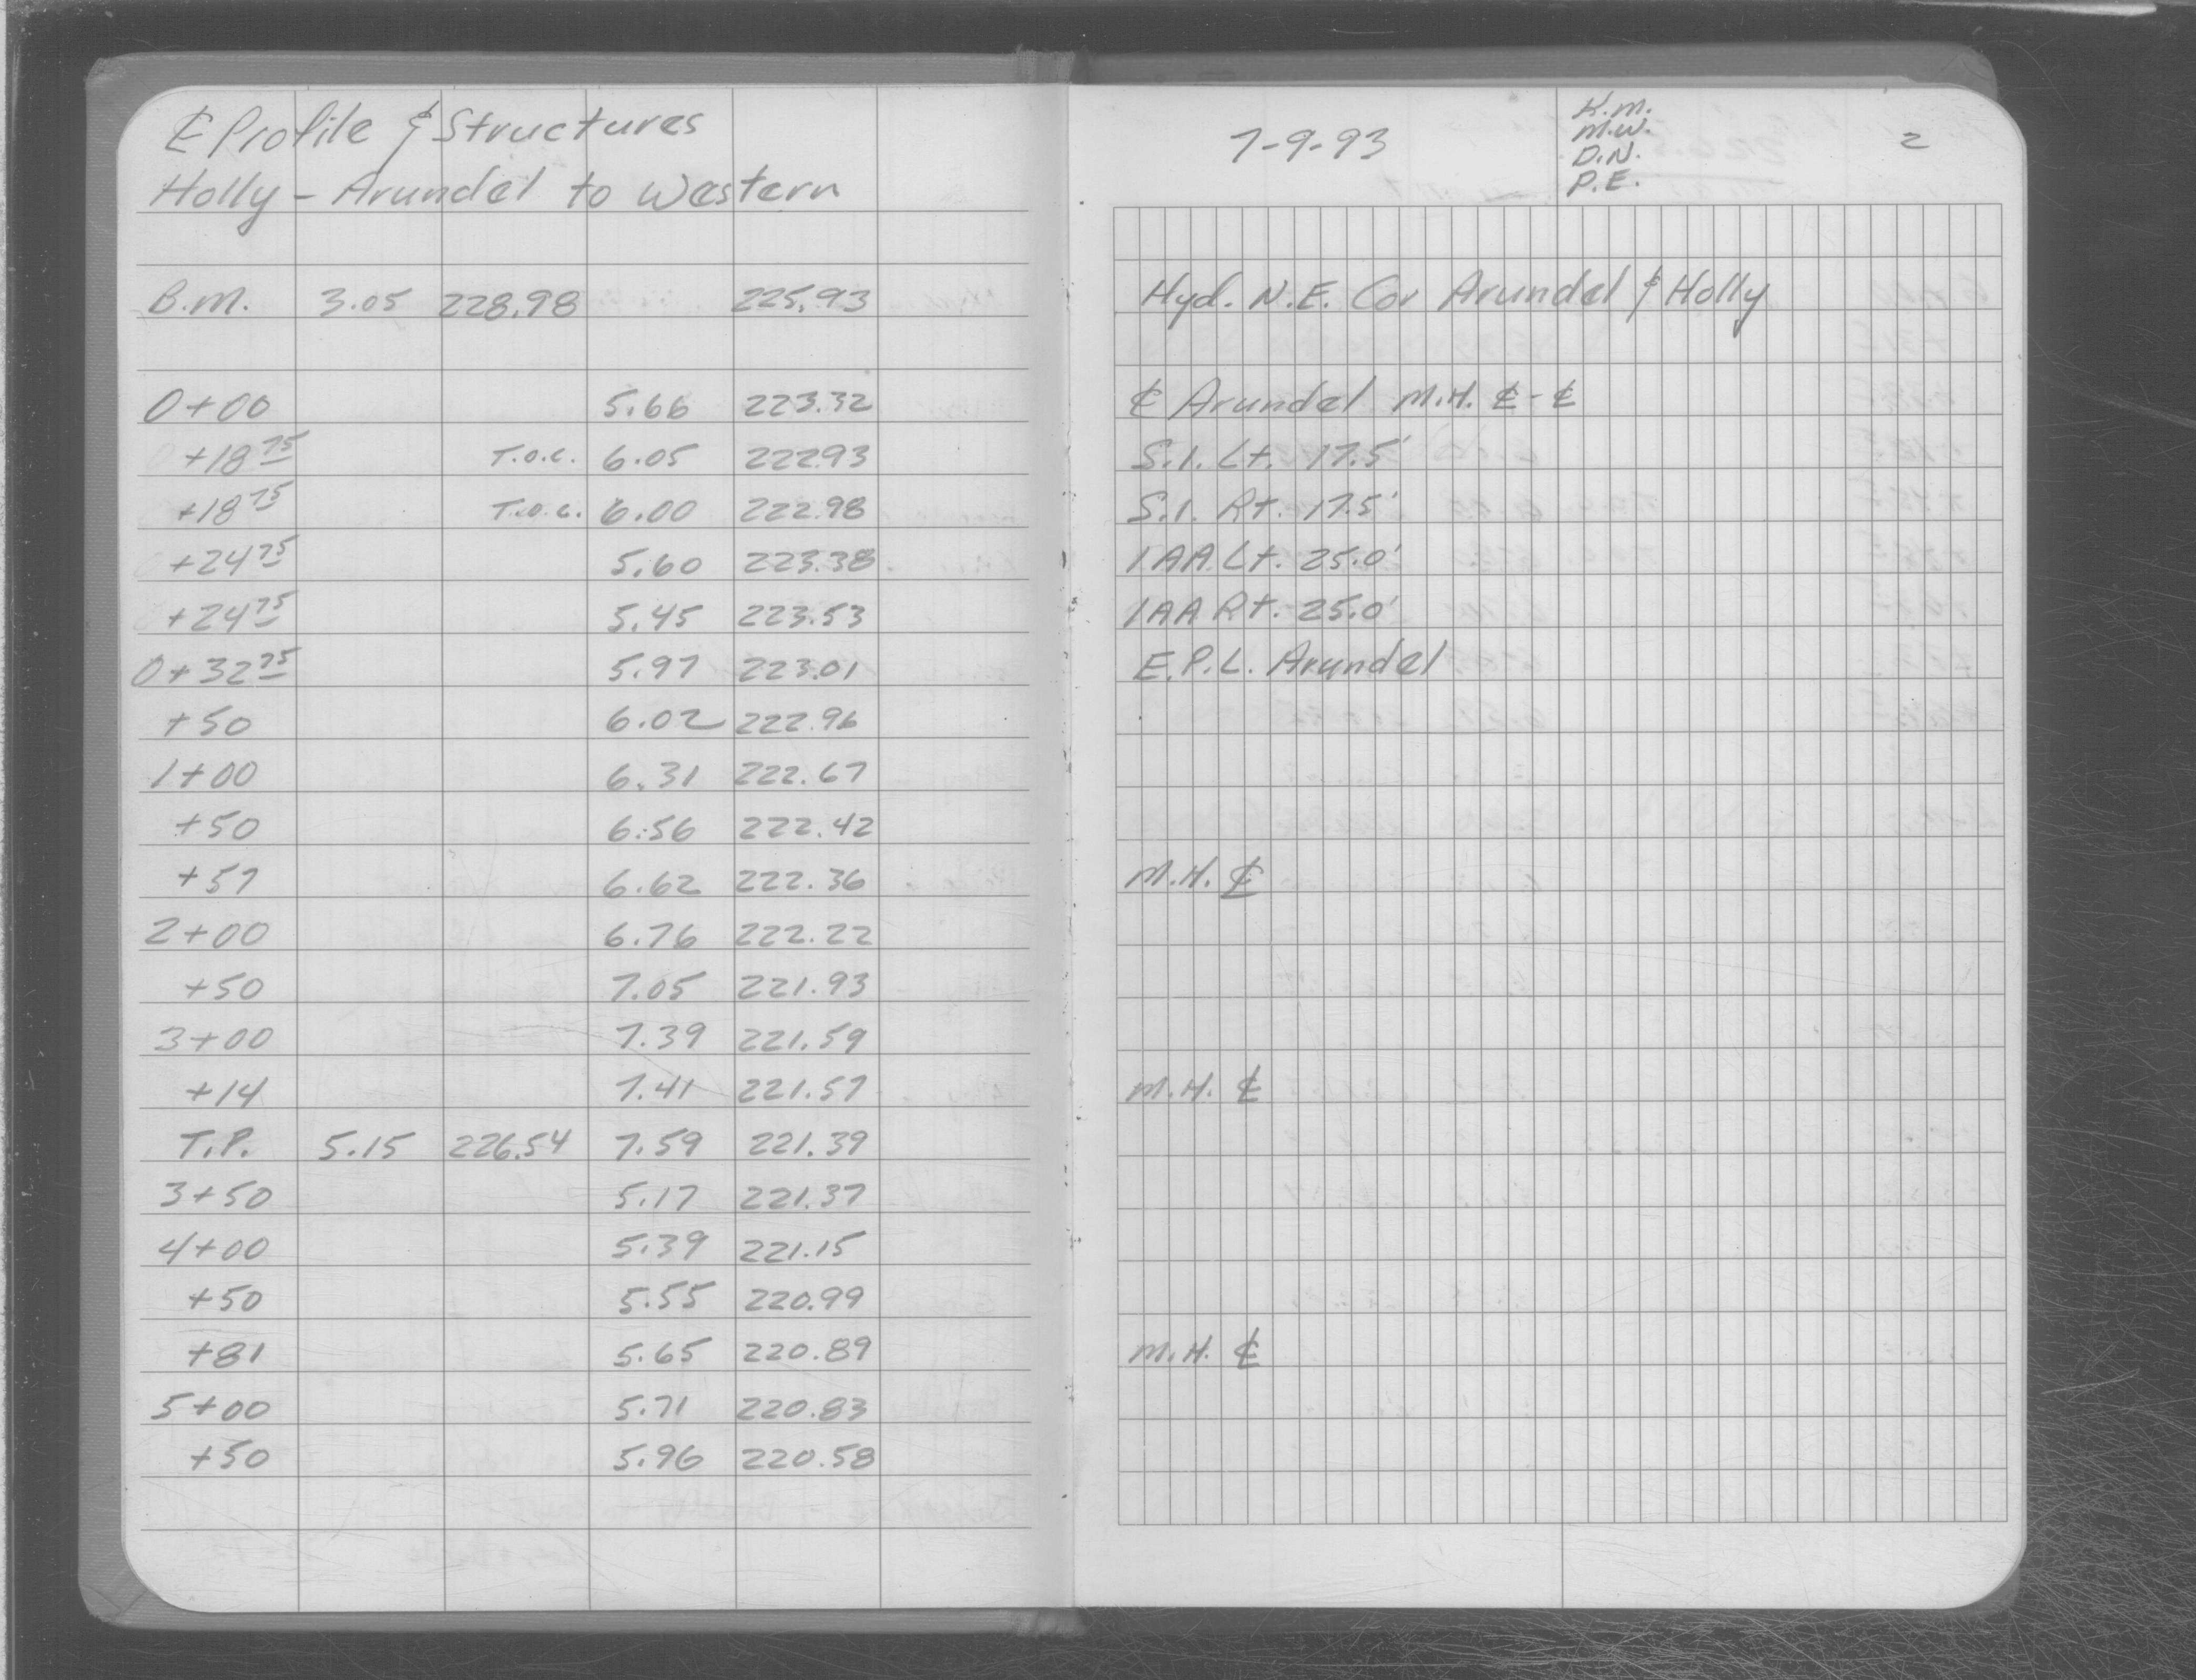 ℄ Profile & Structures
Holly - Arundel to Western
B.M. 3.05 228.98 225.93
0+00 5.66 223.32
+18 75 T.O.C. 6.05 222.93
+18 75 T.O.C. 6.00 222.98
+24 75 5.60 223.38
+24 75 5.45 223.53
0+32 75 5.97 223.01
+50 6.02 222.96
1+00 6.31 222.67
+50 6.56 222.42
+57 6.62 222.36
2+00 6.76 222.22
+50 7.05 221.93
3+00 7.39 221.59
+14 7.41 221.57
T.P. 5.15 226.54 7.59 221.39
3+50 5.17 221.37
4+00 5.39 221.15
+50 5.55 220.99
+81 5.65 220.89
5+00 5.71 220.83
+50 5.96 220.58
7-9-93
K.M.
M.W.
D.N.
P.E.
2
Hyd. N.E. Cor Arundel & Holly
℄ Arundel M.H. ℄-℄
S.I. Lt. 17.5'
S.I. Rt. 17.5'
1AA Lt. 25.0'
1AA Rt. 25.0'
E.P.L. Arundel
M.H. ℄
M.H. ℄
M.H. ℄